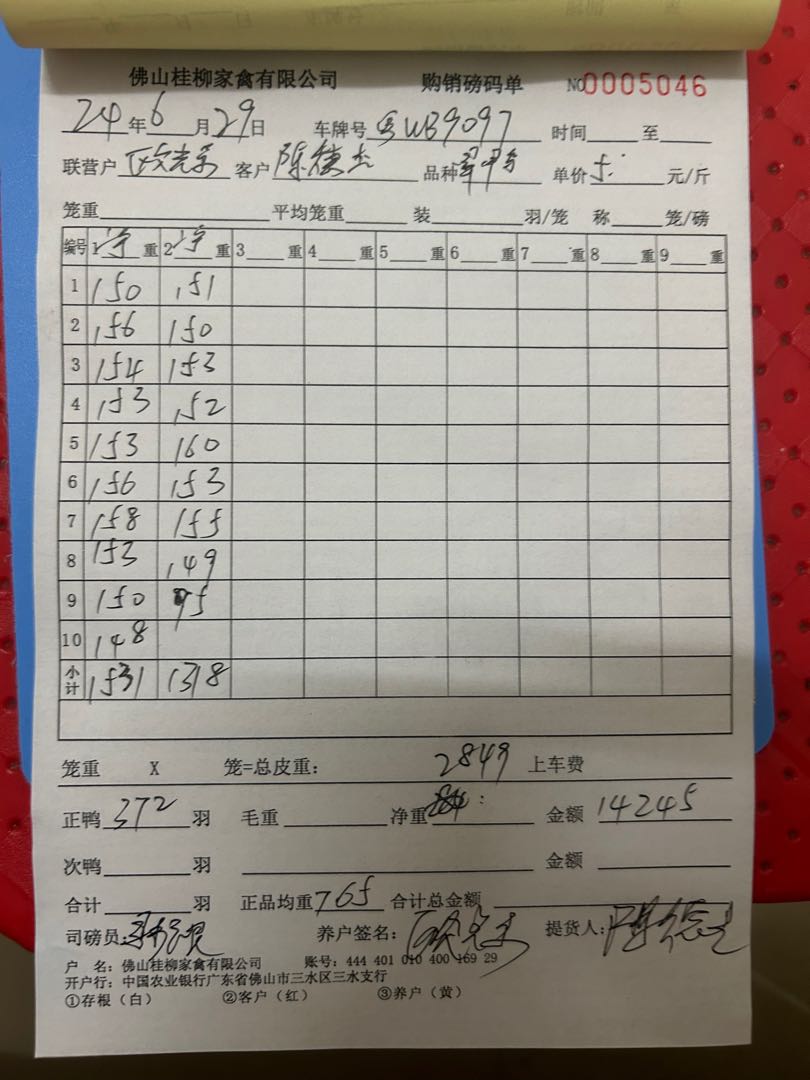 佛山桂柳家禽有限公司 购销磅码单 NO 0005046
24年6月29日 车牌号 WB9097 时间 至
联营户 客户 陈德 品种 单价 5. 元/斤
笼重 平均笼重 装 羽/笼 称 笼/磅
编号 1 净 重 2 净 重 3 重 4 重 5 重 6 重 7 重 8 重 9 重
1 150 151
2 156 150
3 154 153
4 153 152
5 153 160
6 156 153
7 158 155
8 153 149
9 150 95
10 148
小计 1531 1318
笼重 X 笼=总皮重: 2849 上车费
正鸭 372 羽 毛重 净重 金额 14245
次鸭 羽 金额
合计 羽 正品均重 765 合计总金额
司磅员: 养户签名: 提货人: 陈德
户 名: 佛山桂柳家禽有限公司 账号: 444 401 010 400 169 29
开户行: 中国农业银行广东省佛山市三水区三水支行
①存根（白） ②客户（红） ③养户（黄）